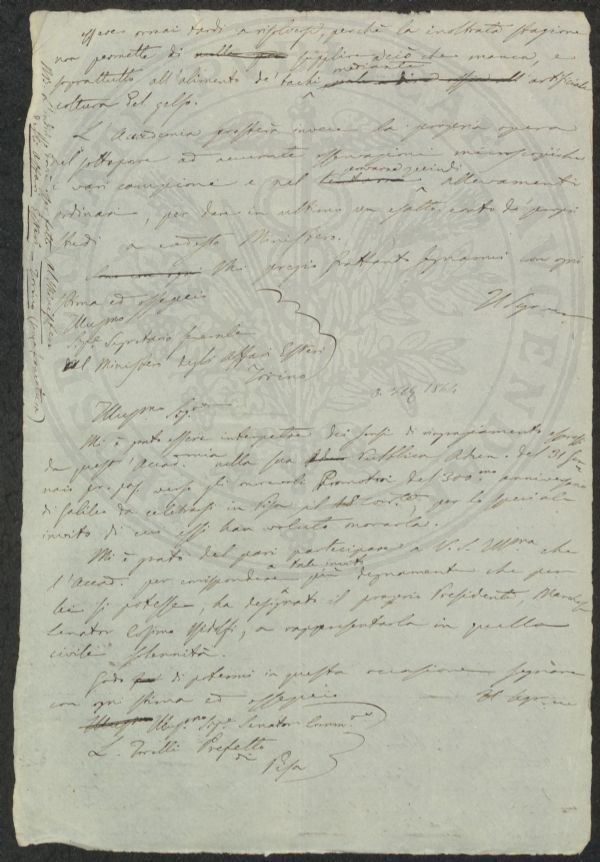 essere ormai tardi a risolversi, perchè la inoltrata stagione
non permette di supplire a ciò che manca, e
soprattutto all'alimento de' bachi mediante artificiale
coltura del gelso.
L'Accademia presterà invece la propria opera
nel sottoporre ad accurate osservazioni microscopiche
i vari campioni e nel allevamenti
ordinari, per dare in ultimo un esatto conto de' propri
studi a codesto Ministero.
Mi pregio frattanto segnarmi con ogni
stima ed ossequio
Il Segr.
Illmo
Sigr Segretario Generale
del Ministero degli Affari Esteri
Torino
8. 1864
Illmo Sigr
Mi è grato essere interpetre dei sensi di ringraziamento espressi
da quest'Accad.mia nella sua Pubblica Adun. del 31 Gen
naio pr. pas. verso gli onorevoli Promotori del 300.mo anniversario
di Galileo da celebrarsi in Pisa il corr.te, per lo speciale
invito di cui essi han voluto onorarla.
Mi è grato del pari partecipare a V. S. Illma che
l'Accad. per corrispondere a tale invito più degnamente che per
lei si potesse, ha designato il proprio Presidente, March.
Senator Cosimo Ridolfi, a rappresentarla in quella
civile solennità.
Godo di potermi in questa occasione segnare
con ogni stima ed ossequio
Il Segr.
Illmo Sigr Senator Comm.re
L. Torelli Prefetto
di
Pisa